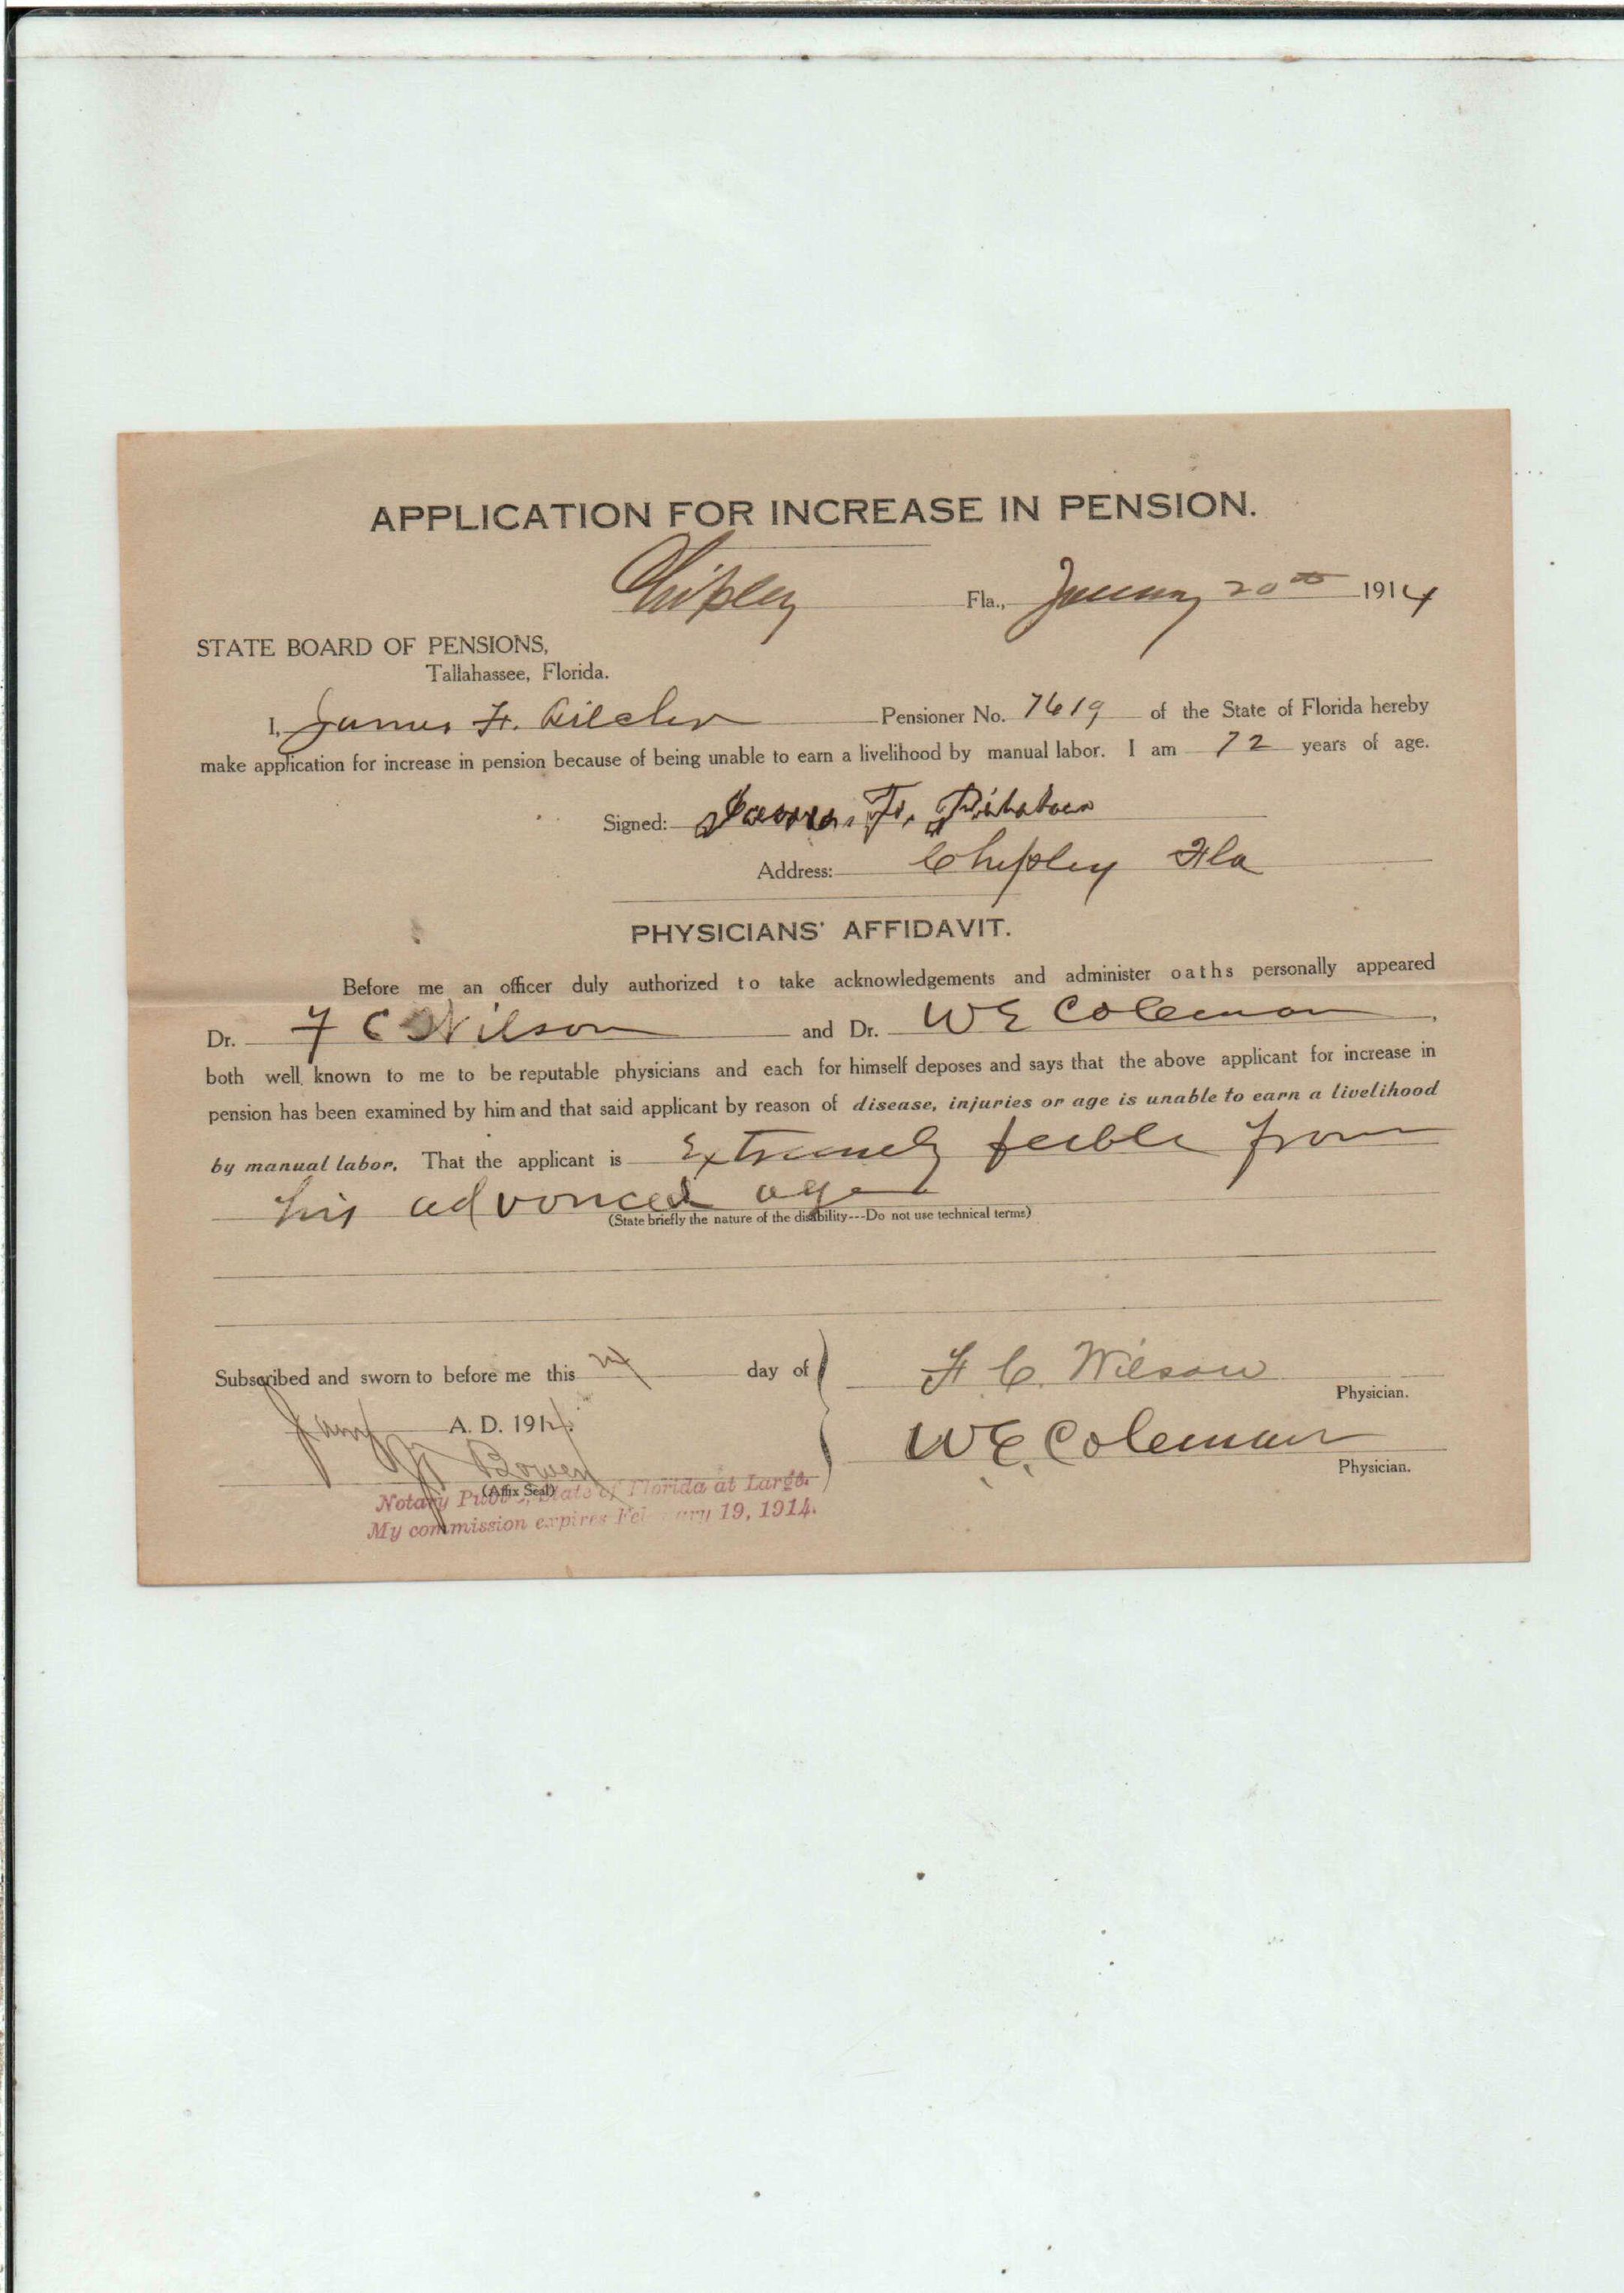 APPLICATION FOR INCREASE IN PENSION.
Chipley Fla., January 20th 1914
STATE BOARD OF PENSIONS,
Tallahassee, Florida.
I, James F. Pensioner No. 7619 of the State of Florida hereby
make application for increase in pension because of being unable to earn a livelihood by manual labor. I am 72 years of age.
Signed: James F.
Address: Chipley Fla
PHYSICIANS' AFFIDAVIT.
Before me an officer duly authorized to take acknowledgements and administer oaths personally appeared
Dr. F C Wilson and Dr. W E Coleman,
both well known to me to be reputable physicians and each for himself deposes and says that the above applicant for increase in
pension has been examined by him and that said applicant by reason of disease, injuries or age is unable to earn a livelihood
by manual labor. That the applicant is Extremely feeble from
his advanced age
(State briefly the nature of the disability---Do not use technical terms)
Subscribed and sworn to before me this day of
F. C. Wilson
Physician.
Jany A. D. 1914.
W E Coleman
Physician.
Bowen
(Affix Seal)
Notary Public, State of Florida at Large.
My commission expires February 19, 1914.